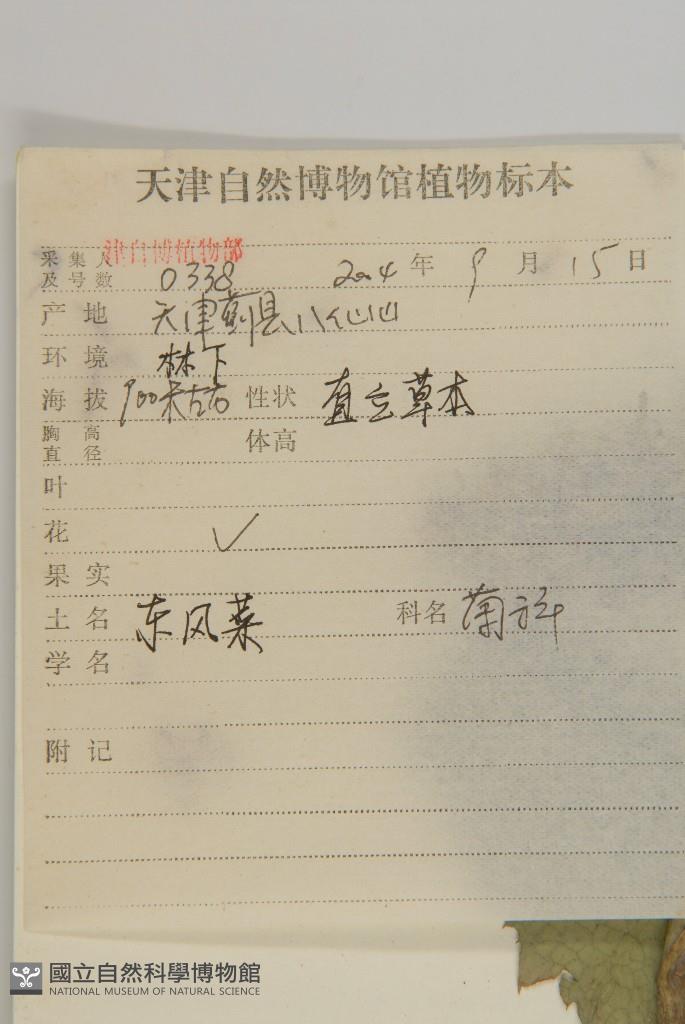 天津自然博物馆植物标本
采集人 津自博植物部
及号数 0338 2004年 9月 15日
产地 天津蓟县八仙山
环境 林下
海拔 900米左右 性状 直立草本
胸高
直径 体高
叶
花 ✓
果实
土名 东风菜 科名 菊科
学名
附记
國立自然科學博物館
NATIONAL MUSEUM OF NATURAL SCIENCE